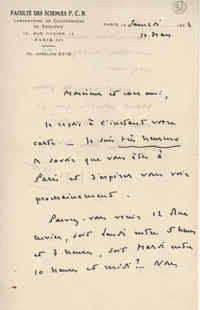 FACULTÉ DES SCIENCES P. C. N.
LABORATOIRE DE CONFÉRENCES
DE ZOOLOGIE
12, RUE CUVIER, 12
PARIS (V)
PARIS, LE Samedi
Monsieur et cher ami,
Je reçois à l'instant votre
carte - Je suis très heureux
de savoir que vous êtes à
Paris et j'espère vous voir
prochainement.
Pouvez-vous venir 12 Rue
Cuvier, soit Lundi entre 5 heures
et 7 heures, soit Mardi entre
10 heures et midi? Nous